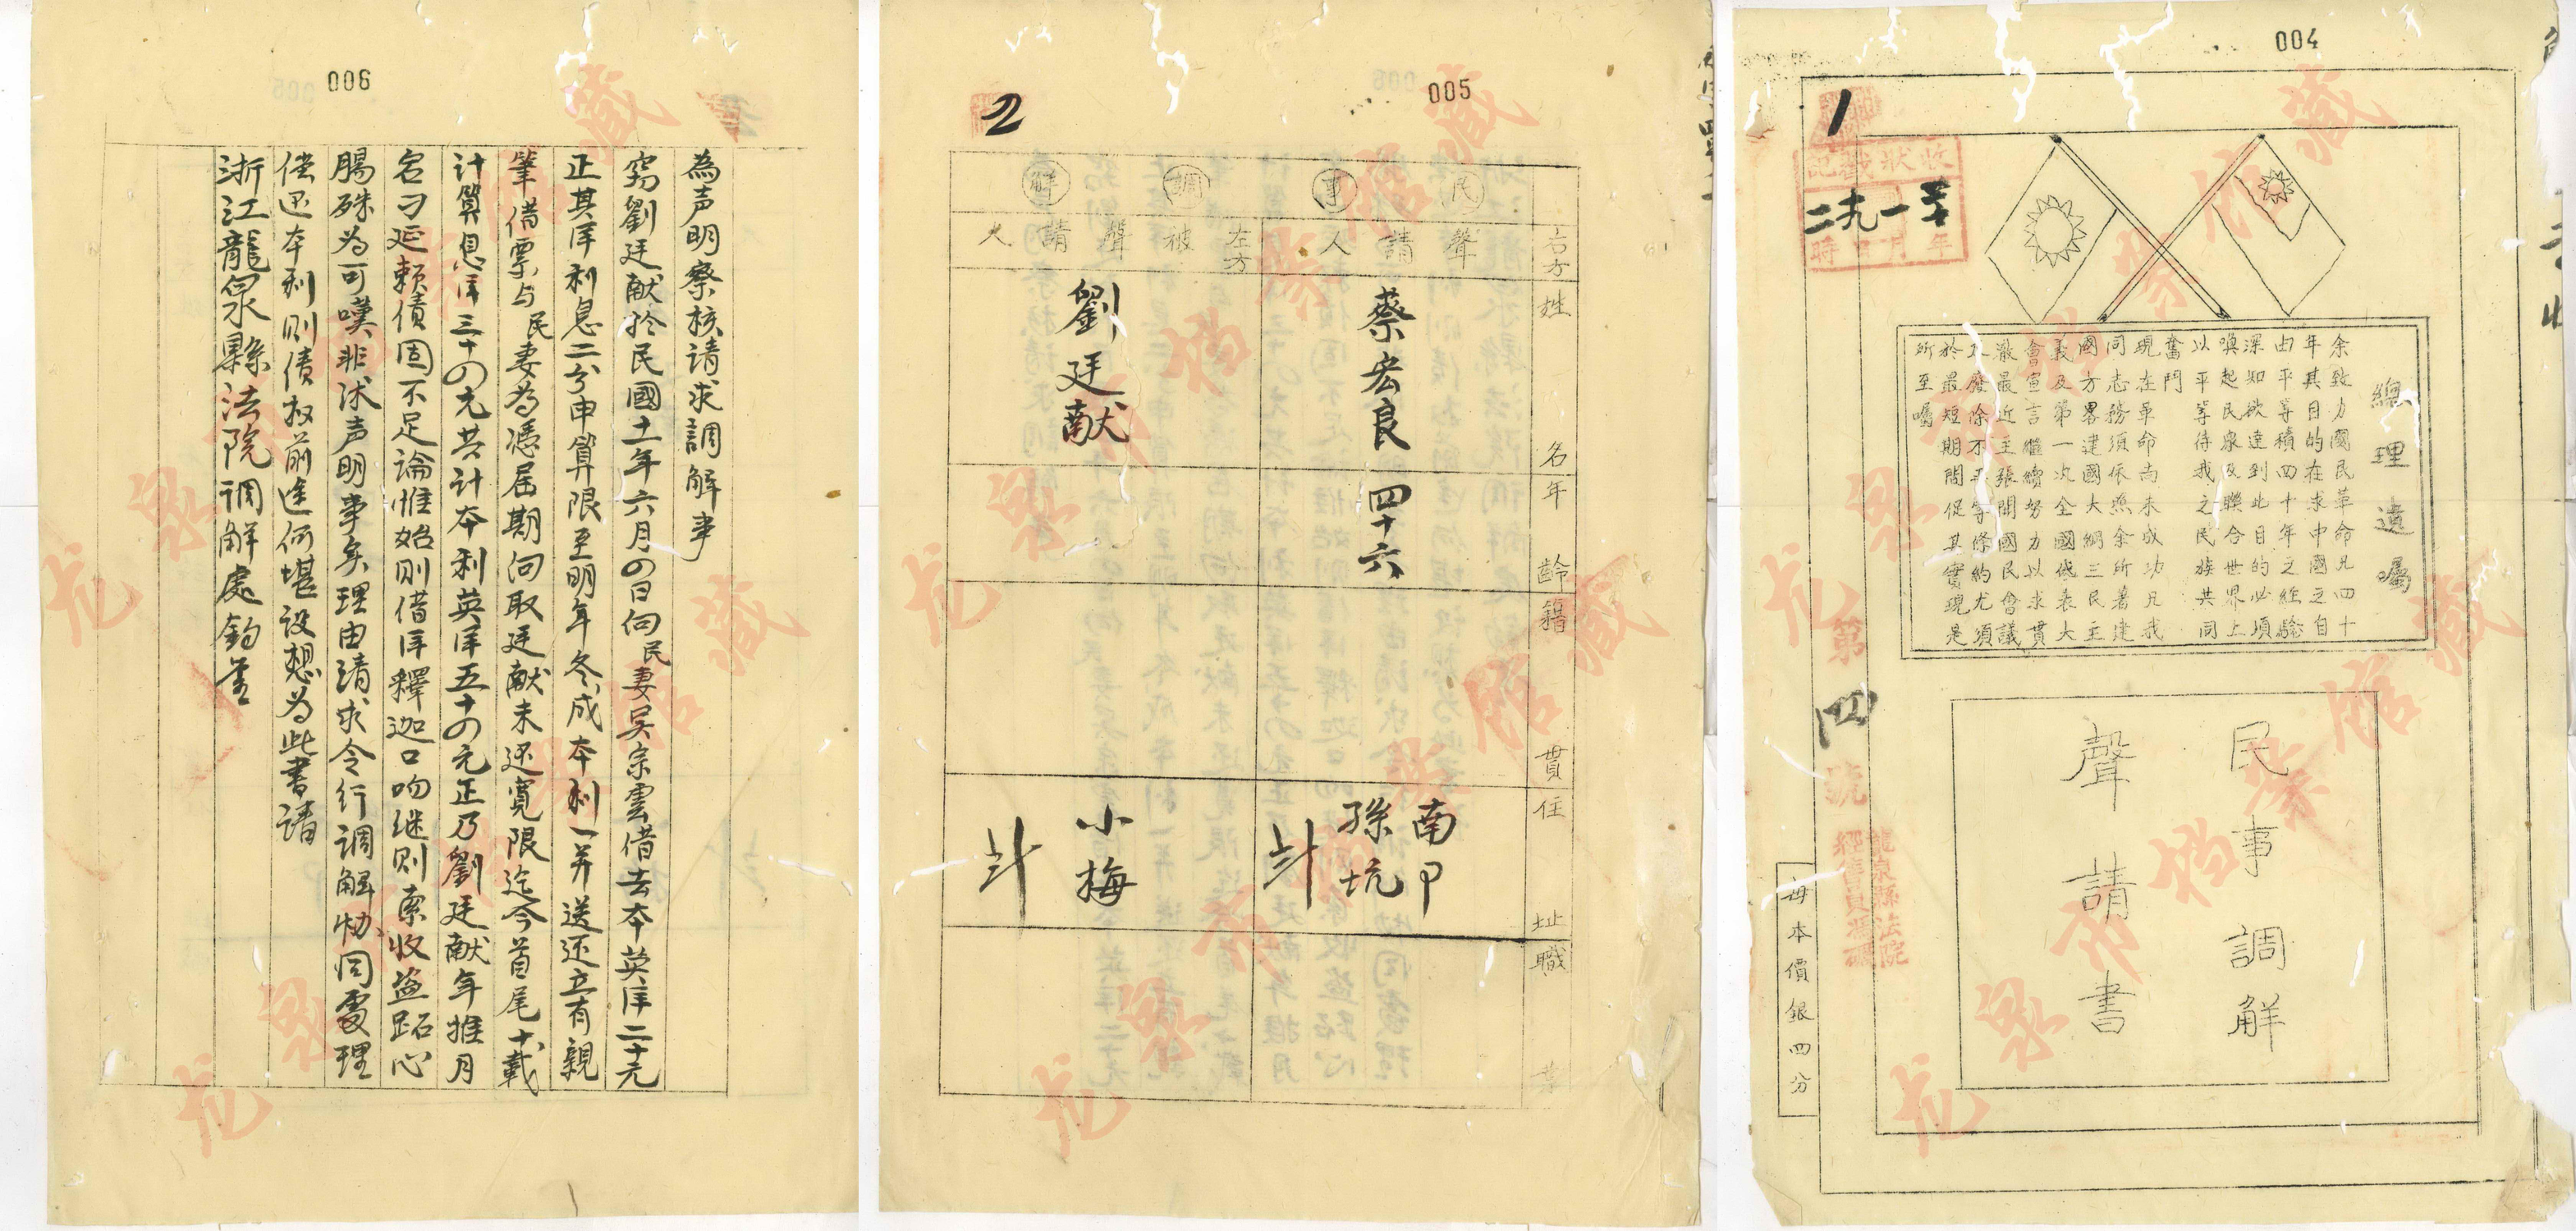 004
1
收狀戳記
年月日時
總理遺囑
余致力國民革命凡四十
年其目的在求中國之自
由平等積四十年之經驗
深知欲達到此目的必須
喚起民眾及聯合世界上
以平等待我之民族共同
奮鬥
現在革命尚未成功凡我
同志務須依照余所著建
國方畧建國大綱三民主
義及第一次全國代表大
會宣言繼續努力以求貫
澈最近主張開國民會議
及廢除不平等條約尤須
於最短期間促其實現是
所至囑
第四號
民事調解
聲請書
每本價銀四分
005
2
民事調解
右方聲請人
左方被聲請人
姓名
年齡
籍貫
住址
職業
蔡宏良
四十六
南
孫坑
劉廷献
小梅
006
為声明察核請求調解事
窃劉廷献於民國十一年六月の日向民妻吴宗雲借去本英洋二十元
正其洋利息二分申算限至明年冬成本利一并送还立有親
筆借票与民妻為憑届期向取廷献未还寛限迄今首尾十載
計算息洋三十の元共計本利英洋五十の元正乃劉廷献年推月
宕刁延賴债固不足論惟始則借洋釋迦口吻继則索收盗跖心
腸殊为可嘆非求声明事矣理由請求令行调解协同處理
偿还本利则债权前途何堪设想为此書請
浙江龍泉縣法院调解處鈞鉴
龙泉档案馆藏